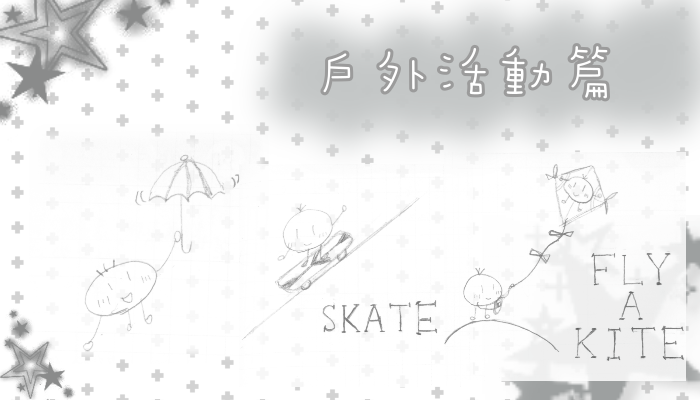 戶外活動篇
SKATE
FLY
A
KITE